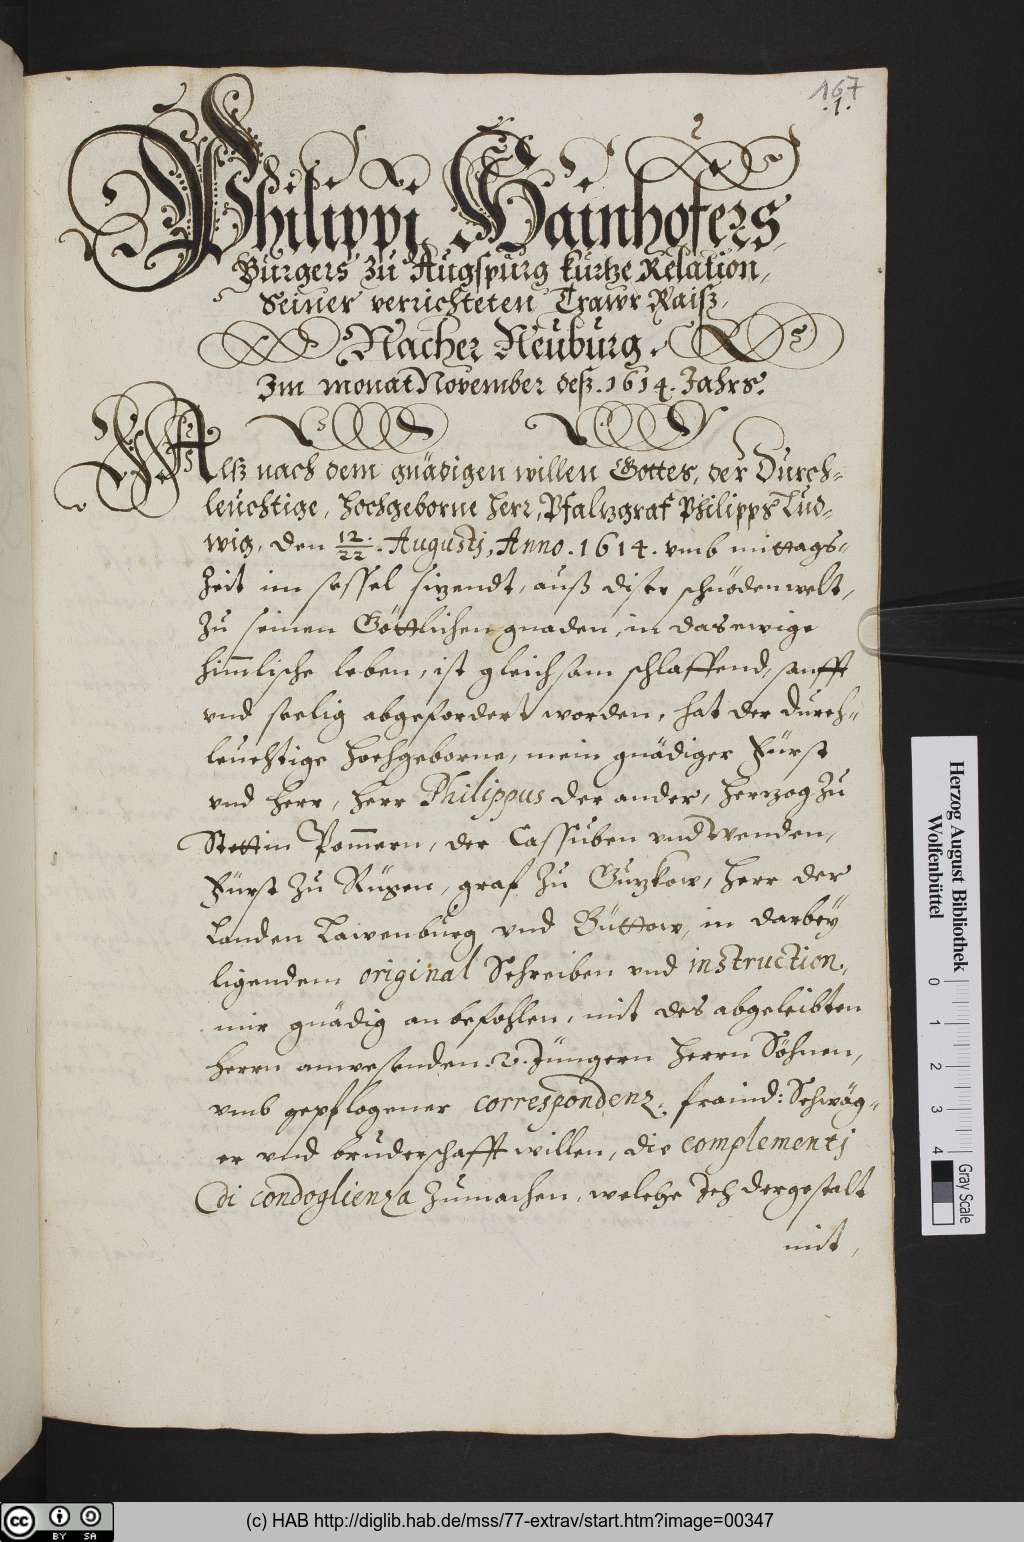 167
.1.
Philippi Hainhofers
Burgers zu Augspurg kurtze Relation,
Seiner verrichteten Trawr Raiß,
Nacher Neuburg.
Im monat November deß .1614. Jahrs.
Alß nach dem gnädigen willen Gottes, der Durch-
leuchtige, hochgeborne herr, Pfaltzgraf Philipps Lud-
wig, den 12./22. Augustj, Anno .1614. vmb mittags-
Zeit im sessel sizendt, auß diser schnöden welt,
zu seinen Göttlichen gnaden, in das ewige
himlische leben, ist gleichsam schlaffend, sanfft
vnd seelig abgefordert worden, hat der durch-
leuchtige hochgeborne, mein gnädiger Fürst
vnd herr, herr Philippus der ander, hertzog zu
Stettin Pomern, der Cassuben vnd Wenden,
Fürst zu Rügen, graf zu Guzkow, herr der
Landen Lawenburg vnd Büttow, in darbeÿ
ligendem original Schreiben vnd instruction,
mir gnädig anbefohlen, mit des abgeleibten
herrn anwesenden .2. Jüngern herrn Söhnen,
vmb gepflogener correspondenz, fraind: Schwäg-
er vnd bruderschafft willen, die complementj
di condoglienza zumachen, welche Ich dergestalt
mit,
Herzog August Bibliothek
Wolfenbüttel
0 1 2 3 4
Gray Scale
cc BY SA
(c) HAB http://diglib.hab.de/mss/77-extrav/start.htm?image=00347